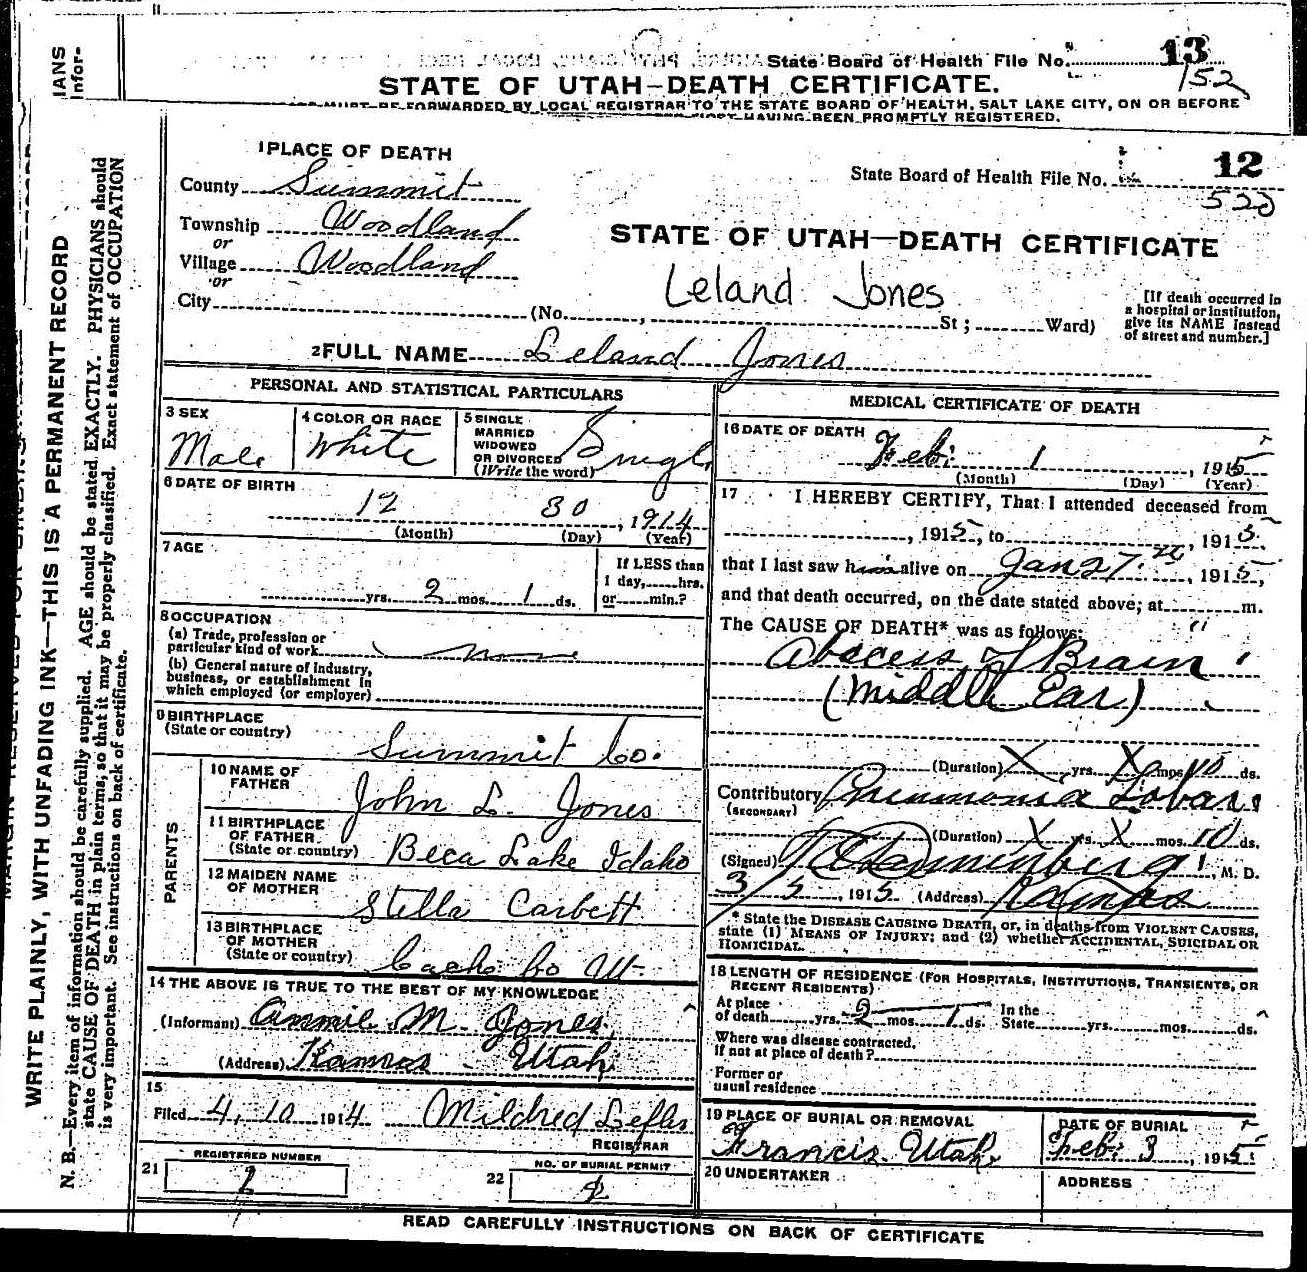 IANS
Infor-
State Board of Health File No. 13
152
STATE OF UTAH-DEATH CERTIFICATE.
MUST BE FORWARDED BY LOCAL REGISTRAR TO THE STATE BOARD OF HEALTH, SALT LAKE CITY, ON OR BEFORE
HAVING BEEN PROMPTLY REGISTERED.
WRITE PLAINLY, WITH UNFADING INK—THIS IS A PERMANENT RECORD
N. B.—Every item of information should be carefully supplied. AGE should be stated EXACTLY. PHYSICIANS should
state CAUSE OF DEATH in plain terms, so that it may be properly classified. Exact statement of OCCUPATION
is very important. See instructions on back of certificate.
1 PLACE OF DEATH
County Summit
Township Woodland
or
Village Woodland
or
City (No. , St ; Ward)
State Board of Health File No. 12
520
STATE OF UTAH—DEATH CERTIFICATE
Leland Jones
[If death occurred in
a hospital or institution,
give its NAME instead
of street and number.]
2 FULL NAME Leland Jones
PERSONAL AND STATISTICAL PARTICULARS
3 SEX
Male
4 COLOR OR RACE
White
5 SINGLE
MARRIED
WIDOWED
OR DIVORCED
(Write the word)
Single
6 DATE OF BIRTH
12 30, 1914
(Month) (Day) (Year)
7 AGE
yrs. 2 mos. 1 ds.
If LESS than
1 day, hrs.
or min.?
8 OCCUPATION
(a) Trade, profession or
particular kind of work none
(b) General nature of industry,
business, or establishment in
which employed (or employer)
9 BIRTHPLACE
(State or country)
Summit Co.
PARENTS
10 NAME OF
FATHER
John L. Jones
11 BIRTHPLACE
OF FATHER
(State or country) Beca Lake Idaho
12 MAIDEN NAME
OF MOTHER
Stella Carbett
13 BIRTHPLACE
OF MOTHER
(State or country) Cache Co Ut
14 THE ABOVE IS TRUE TO THE BEST OF MY KNOWLEDGE
(Informant) Annie M. Jones
(Address) Kamas Utah
15
Filed 4, 10 1914 Mildred Lefler
REGISTRAR
21 REGISTERED NUMBER
1
22 NO. OF BURIAL PERMIT
MEDICAL CERTIFICATE OF DEATH
16 DATE OF DEATH
Feb. 1, 1915
(Month) (Day) (Year)
17 I HEREBY CERTIFY, That I attended deceased from
, 1915, to , 1915,
that I last saw him alive on Jan 27th, 1915,
and that death occurred, on the date stated above; at m.
The CAUSE OF DEATH* was as follows:
Abscess of Brain
(Middle Ear)
(Duration) X yrs. X mos 10 ds.
Contributory Pneumonia Lobar
(SECONDARY)
(Duration) X yrs. X mos. 10 ds.
(Signed) Dannenberg, M. D.
3/5, 1915 (Address) Kamas
* State the DISEASE CAUSING DEATH, or, in deaths from VIOLENT CAUSES,
state (1) MEANS OF INJURY; and (2) whether ACCIDENTAL, SUICIDAL OR
HOMICIDAL.
18 LENGTH OF RESIDENCE (FOR HOSPITALS, INSTITUTIONS, TRANSIENTS, OR
RECENT RESIDENTS)
At place
of death yrs. 2 mos. 1 ds.
In the
State yrs. mos. ds.
Where was disease contracted,
if not at place of death?
Former or
usual residence
19 PLACE OF BURIAL OR REMOVAL
Francis Utah
DATE OF BURIAL
Feb. 3, 1915
20 UNDERTAKER
ADDRESS
READ CAREFULLY INSTRUCTIONS ON BACK OF CERTIFICATE